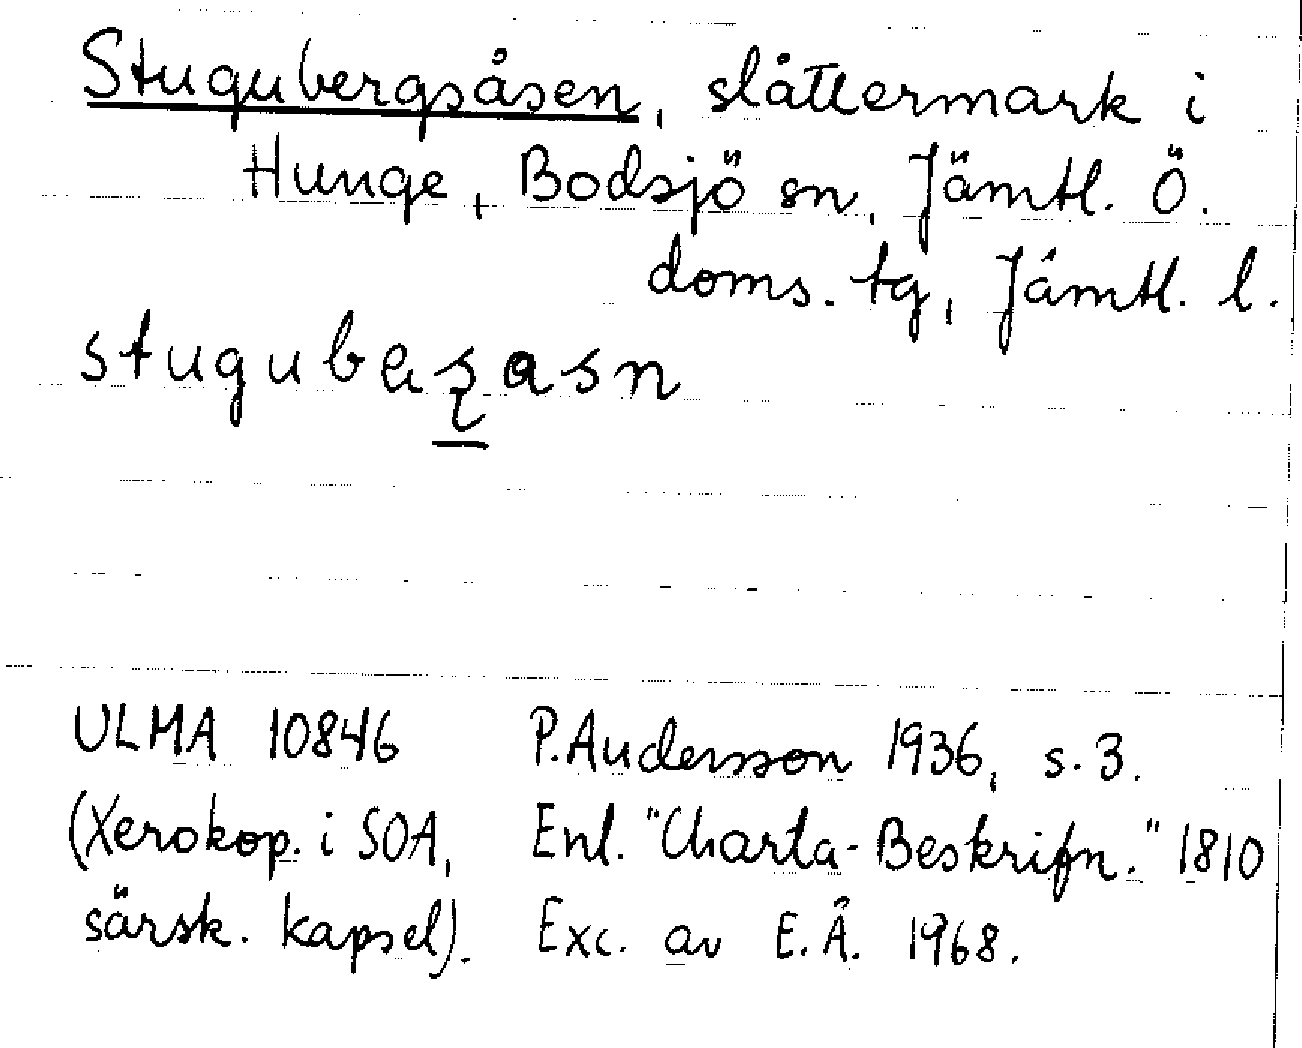 Stugubergsåsen, slåttermark i
Hunge, Bodsjö sn, Jämtl. Ö.
doms. tg, Jämtl. l.
ULMA 10846 P. Andersson 1936, s. 3.
(Xerokop. i SOA, Enl. "Charta-Beskrifn." 1810
särsk. kapsel). Exc. av E. Å. 1968.